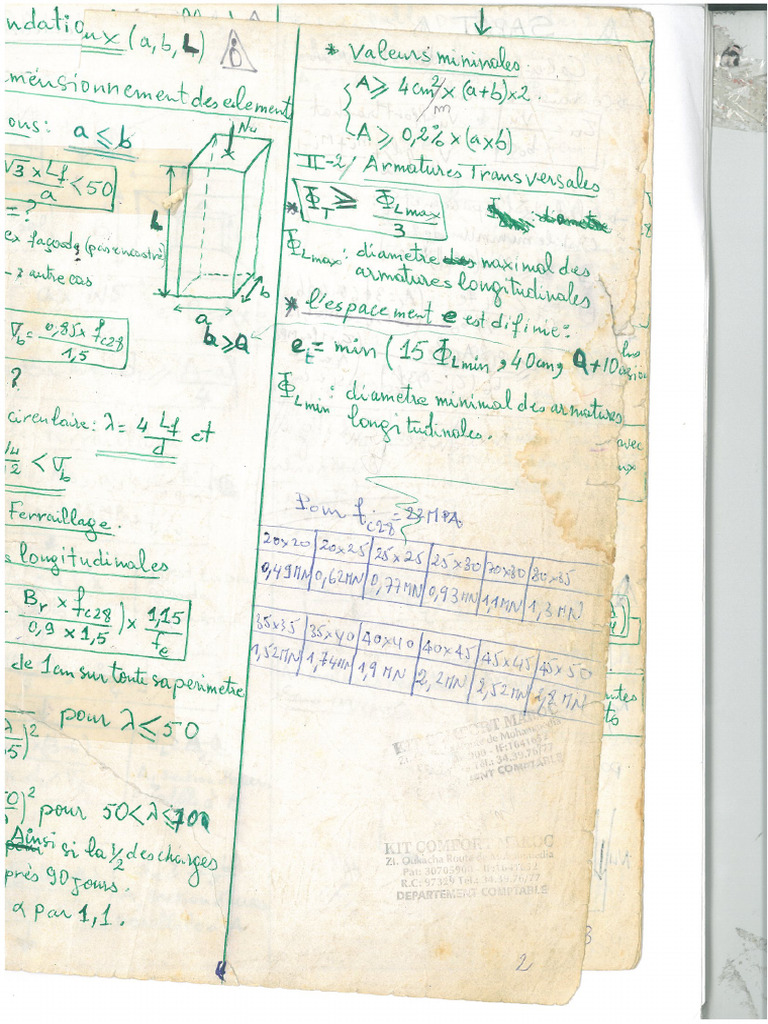 ndation
ux (a, b, L)
6
imensionnement des element
ous: a ≤ b
Nu
√3 x Lf / a < 50
= ?
L
ex façade (pas encastré)
- ? autre cas
a
b
b ≥ a
σb = 0,85 x fc28 / 1,5
?
circulaire: λ = 4 Lf / d et
< σb
Ferraillage.
s longitudinales
Br x fc28 / 0,9 x 1,5) x 1,15 / fe
de 1cm sur toute sa perimetre
)² pour λ ≤ 50
)² pour 50 < λ ≤ 70
Ainsi si la 1/2 des charges
près 90 jours.
α par 1,1.
* Valeurs mininales
A ≥ 4cm²/m x (a+b) x 2.
A ≥ 0,2% x (a x b)
II-2/ Armatures Transversales
* ΦT ≥ ΦLmax / 3
ΦLmax: diametre maximal des
armatures longitudinales
* l'espacement e est difinie:
et = min (15 ΦLmin, 40cm, a+10
ΦLmin: diametre minimal des armatures
longitudinales.
avec
ux
Pour fc28 = 22 MPA.
20x20 20x25 25x25 25x30 30x30 30x35
0,49MN 0,62MN 0,77MN 0,93MN 1,1MN 1,3MN
35x35 35x40 40x40 40x45 45x45 45x50
1,52MN 1,74MN 1,9MN 2,2MN 2,52MN 2,8MN
KIT COMFORT MAROC
de Mohammedia
Tél.: 34.39.76/77
KIT COMFORT MAROC
Zi. Oukacha Route de Mohammedia
Pat: 30705900 - IF:1641652
R.C: 97329 Tél.: 34.39.76/77
DEPARTEMENT COMPTABLE
2
3